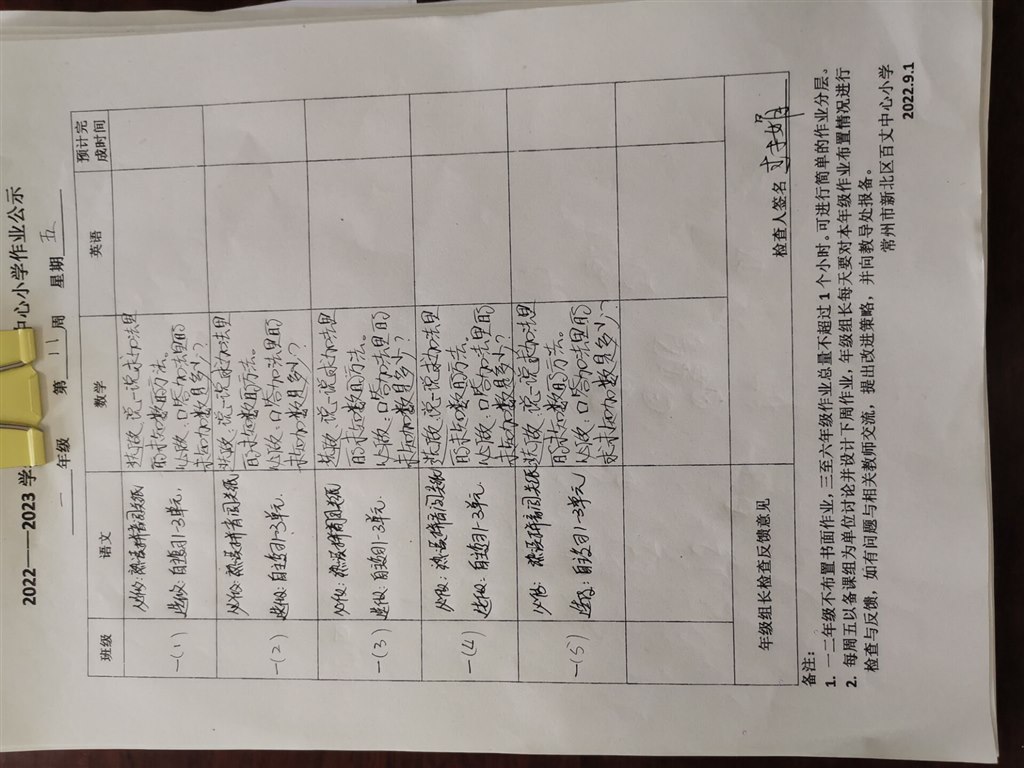 2022——2023 学
中心小学作业公示
一 年级 第 11 周 星期 五
班级 语文 数学 英语 预计完成时间
一(1)
必做: 熟读拼音阅读纸
选做: 自选1-3单元,
说一说求加法里
的未知数的方法。
必做: 口答加法里的
未知加数是多少?
一(2)
必做: 熟读拼音阅读纸
选做: 自选1-3单元.
说一说求加法里
的未知数的方法。
必做: 口答加法里的
未知加数是多少?
一(3)
必做: 熟读拼音阅读纸
选做: 自选1-3单元.
说一说求加法里
的未知数的方法。
必做: 口答加法里的
未知加数是多少?
一(4)
必做: 熟读拼音阅读纸
选做: 自选1-3单元.
说一说求加法里
的未知数的方法。
必做: 口答加法里的
未知加数是多少?
一(5)
必做: 熟读拼音阅读纸
选做: 自选1-3单元
说一说求加法里
的未知数的方法。
必做: 口答加法里的
未知加数是多少?
年级组长检查反馈意见
检查人签名
备注:
1. 一二年级不布置书面作业,三至六年级作业总量不超过 1 个小时。可进行简单的作业分层。
2. 每周五以备课组为单位讨论并设计下周作业,年级组长每天要对本年级作业布置情况进行
检查与反馈,如有问题与相关教师交流,提出改进策略,并向教导处报备。
常州市新北区百丈中心小学
2022.9.1